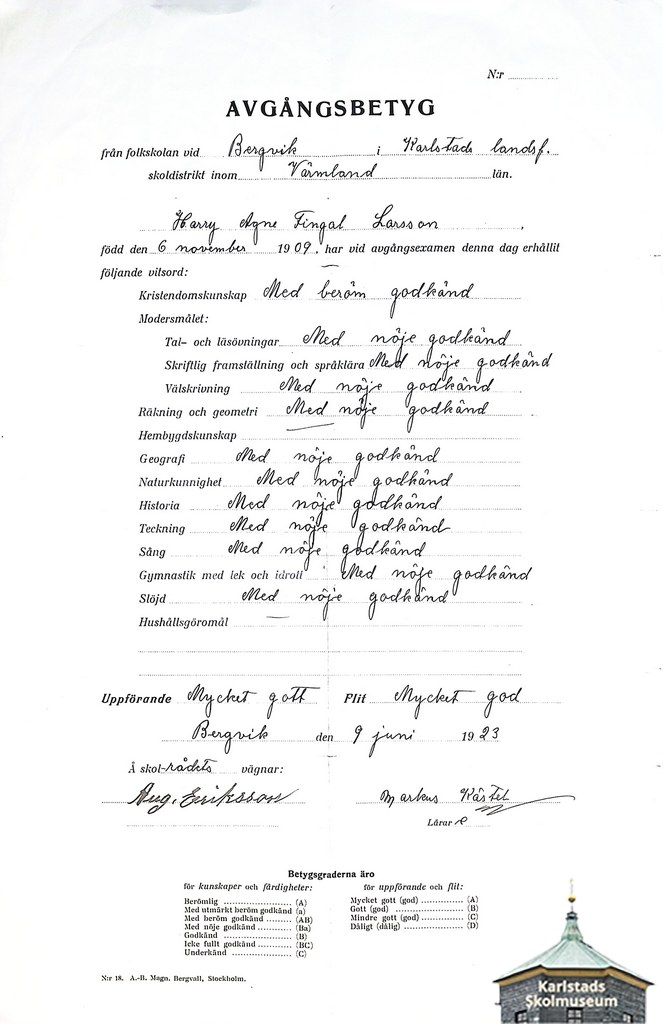 N:r
AVGÅNGSBETYG
från folkskolan vid Bergvik i Karlstads landsf.
skoldistrikt inom Värmland län.
Harry Agne Fingal Larsson,
född den 6 november 1909, har vid avgångsexamen denna dag erhållit
följande vitsord:
Kristendomskunskap Med beröm godkänd
Modersmålet:
Tal- och läsövningar Med nöje godkänd
Skriftlig framställning och språklära Med nöje godkänd
Välskrivning Med nöje godkänd
Räkning och geometri Med nöje godkänd
Hembygdskunskap
Geografi Med nöje godkänd
Naturkunnighet Med nöje godkänd
Historia Med nöje godkänd
Teckning Med nöje godkänd
Sång Med nöje godkänd
Gymnastik med lek och idrott Med nöje godkänd
Slöjd Med nöje godkänd
Hushållsgöromål
Uppförande Mycket gott Flit Mycket god
Bergvik den 9 juni 1923
Å skol-rådets vägnar:
Aug. Eriksson Markus Kästel
Lärare
Betygsgraderna äro
för kunskaper och färdigheter: för uppförande och flit:
Berömlig (A) Mycket gott (god) (A)
Med utmärkt beröm godkänd (a) Gott (god) (B)
Med beröm godkänd (AB) Mindre gott (god) (C)
Med nöje godkänd (Ba) Dåligt (dålig) (D)
Godkänd (B)
Icke fullt godkänd (BC)
Underkänd (C)
N:r 18. A.-B. Magn. Bergvall, Stockholm.
Karlstads
Skolmuseum